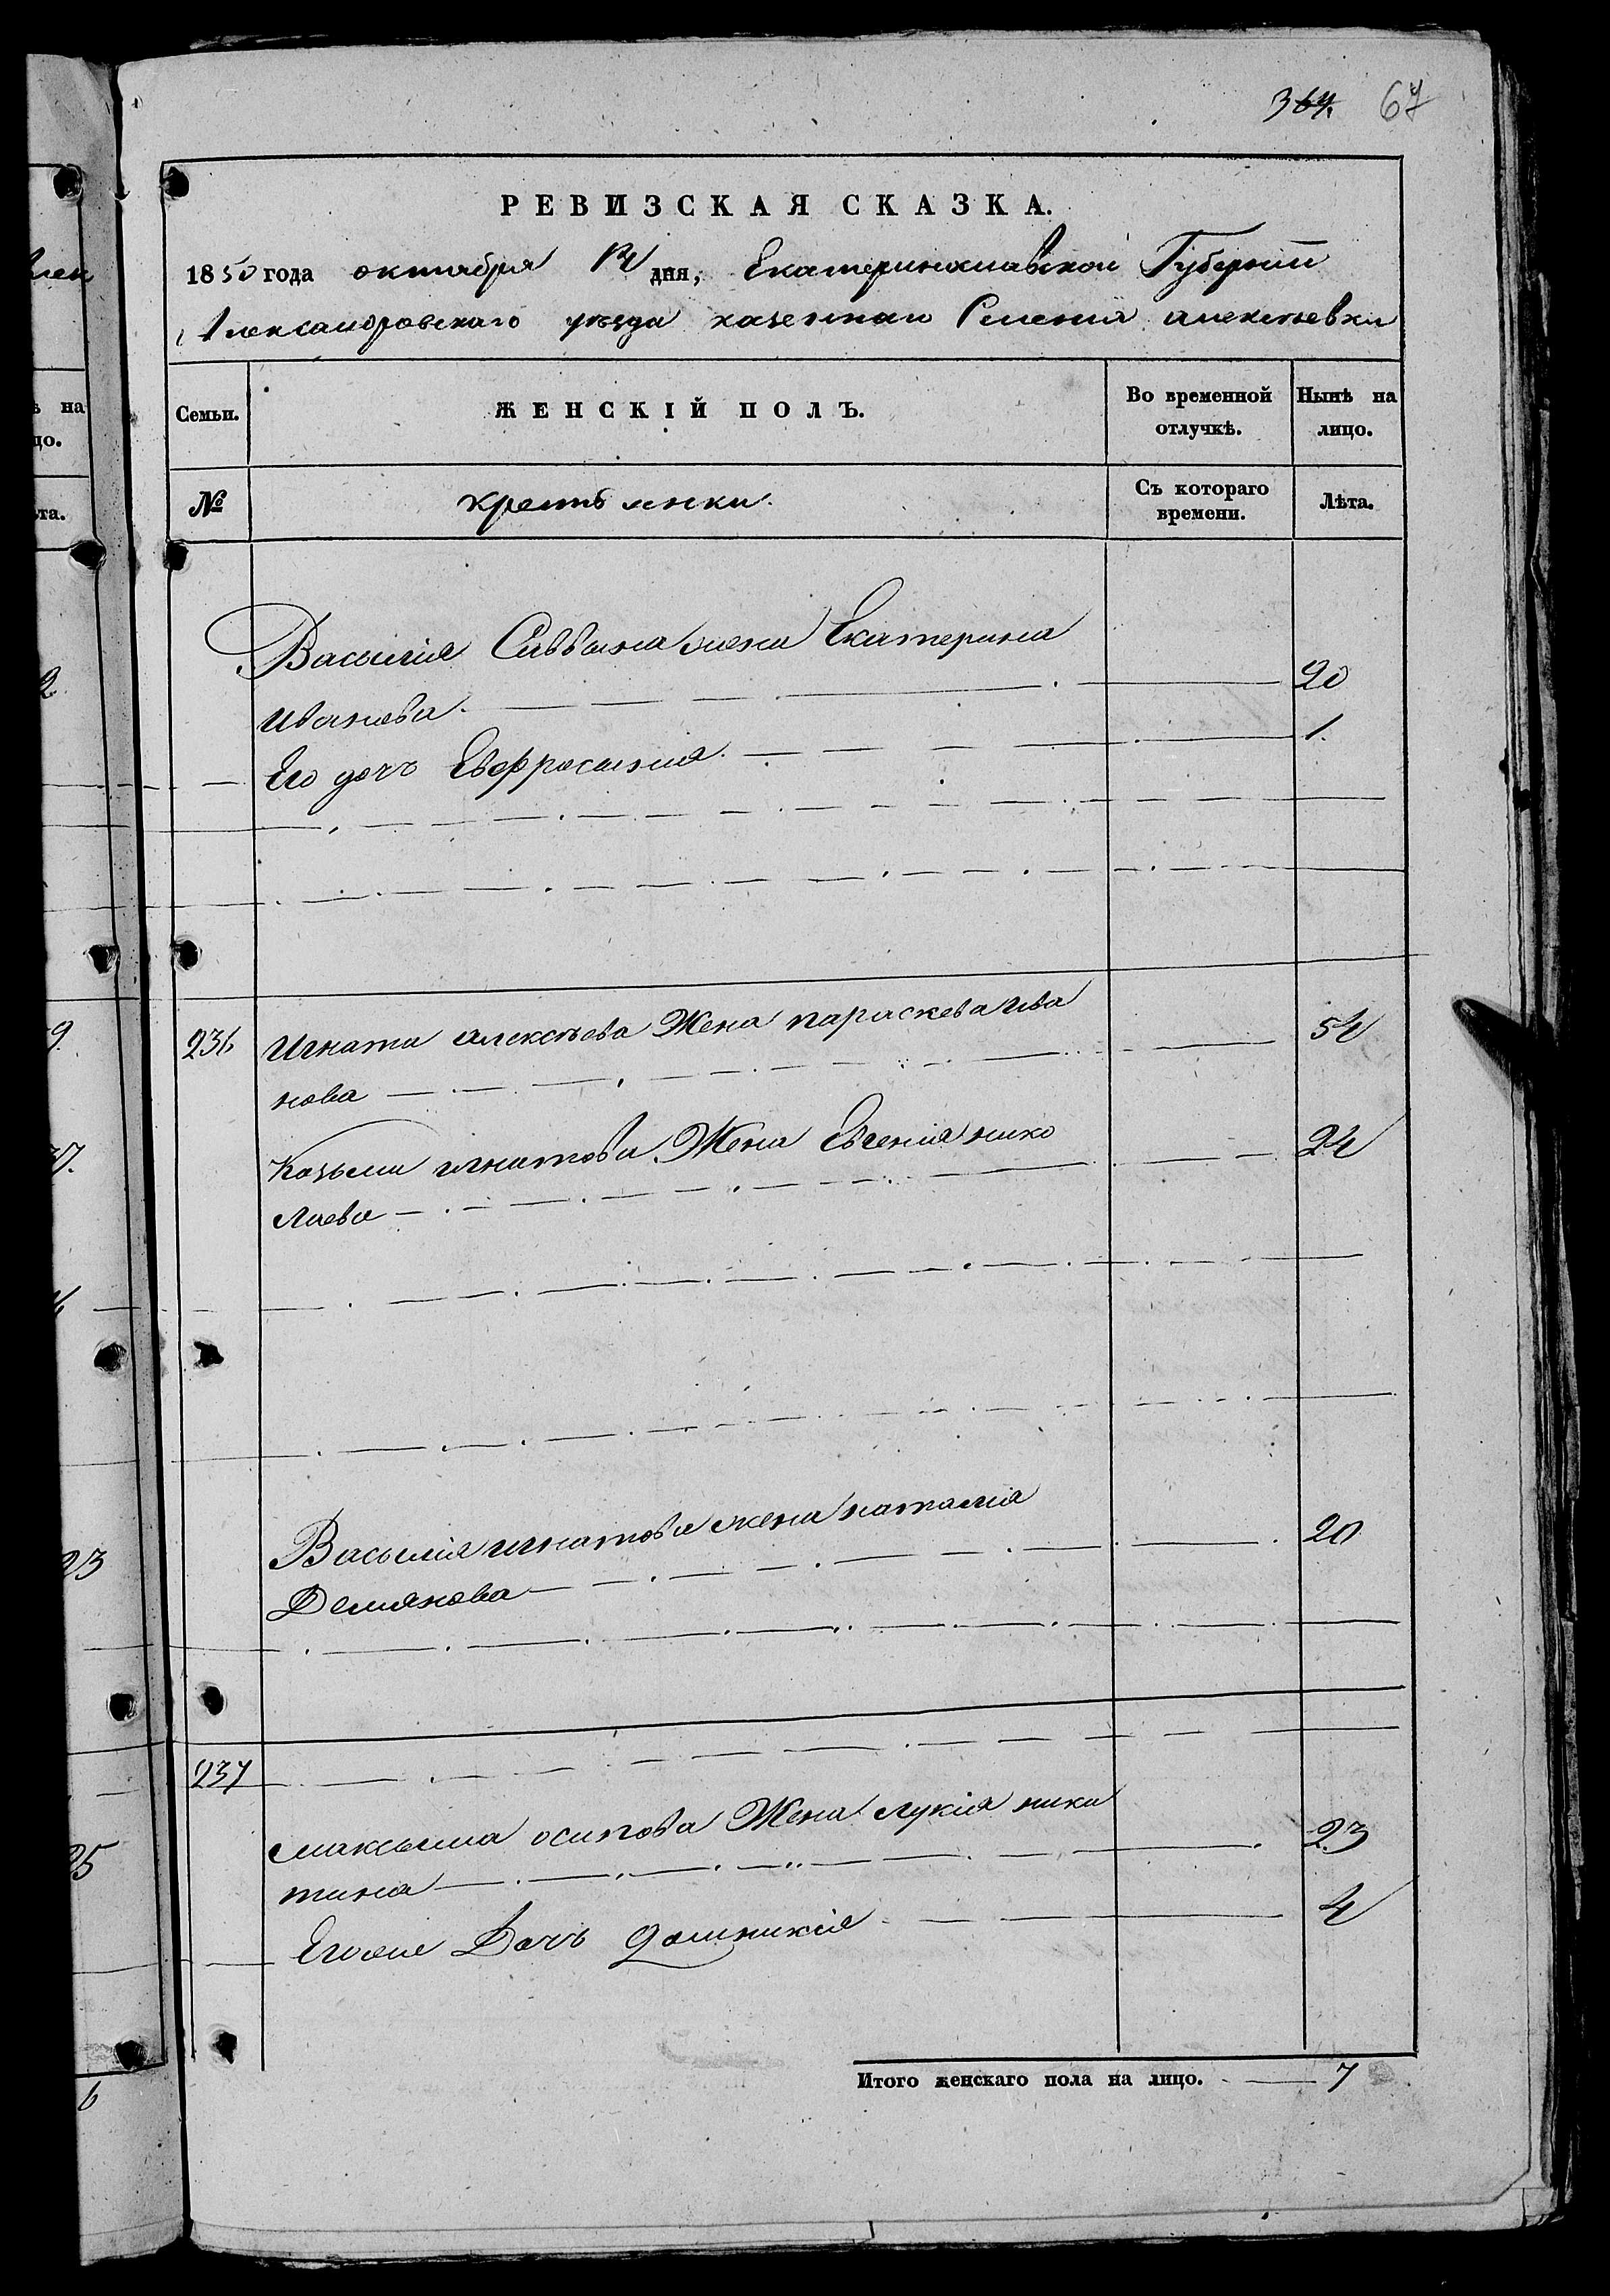 364. 67
РЕВИЗСКАЯ СКАЗКА.
1850 года октября 12 дня, Екатеринославской Губернии
Александровскаго уѣзда казеннаго Селения алексѣевки
Семьи. ЖЕНСКІЙ ПОЛЪ. Во временной отлучкѣ. Нынѣ на лицо.
№ крестьянки. Съ котораго времени. Лѣта.
Васылія Саввына жена Екатерина
Иванова. 20
Его дочъ Евфросынія. 1.
236 Игната алексѣева Жена параскева Ива
нова 54
Козьмы игнатова Жена Евгенія нико
лаева 24
Васылія игнатова жена наталія
Демянова 20
237
максыма осипова Жена лукія ники
тина 23
Егоже Дочъ Домникія 4
Итого женскаго пола на лицо. 7